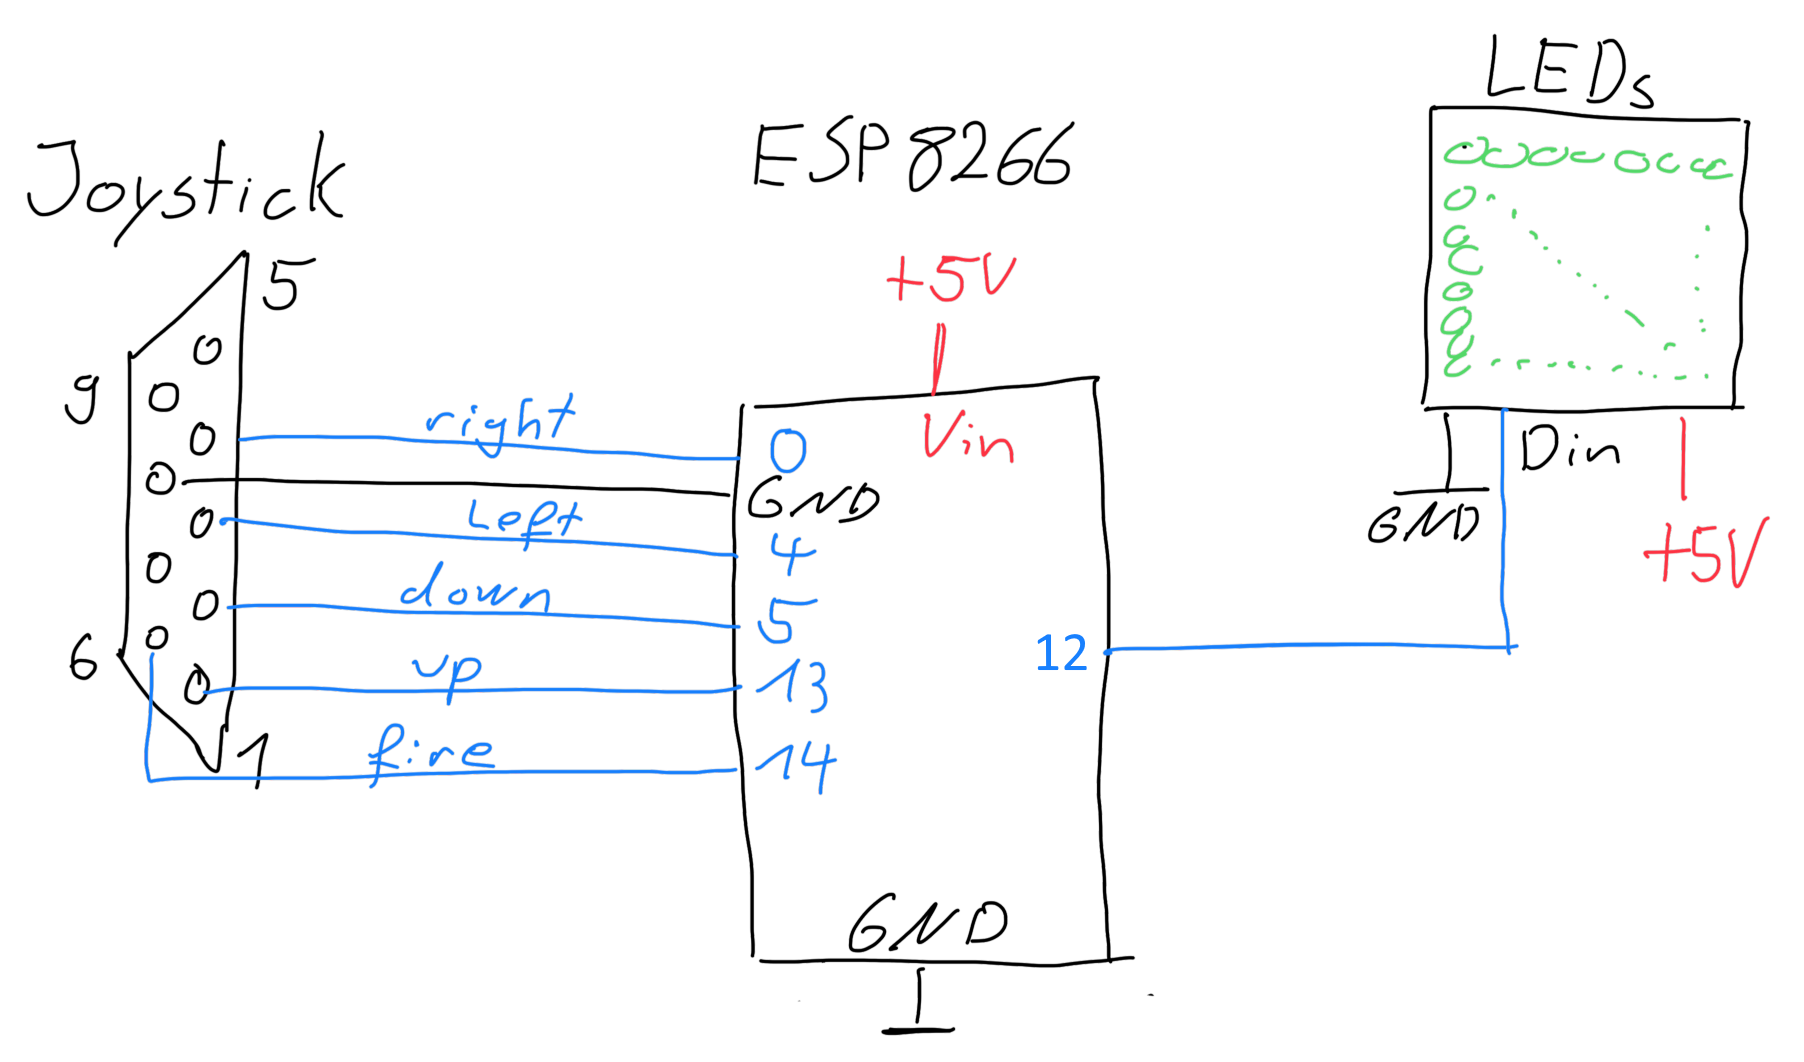 Joystick
5
9
6
1
right
Left
down
up
fire
ESP8266
+5V
Vin
0
GND
4
5
13
14
12
GND
LEDs
Din
GND
+5V